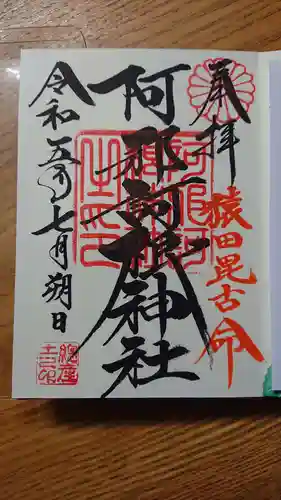 奉拝
猿田毘古命
阿邪訶根神社
令和五年七月朔日